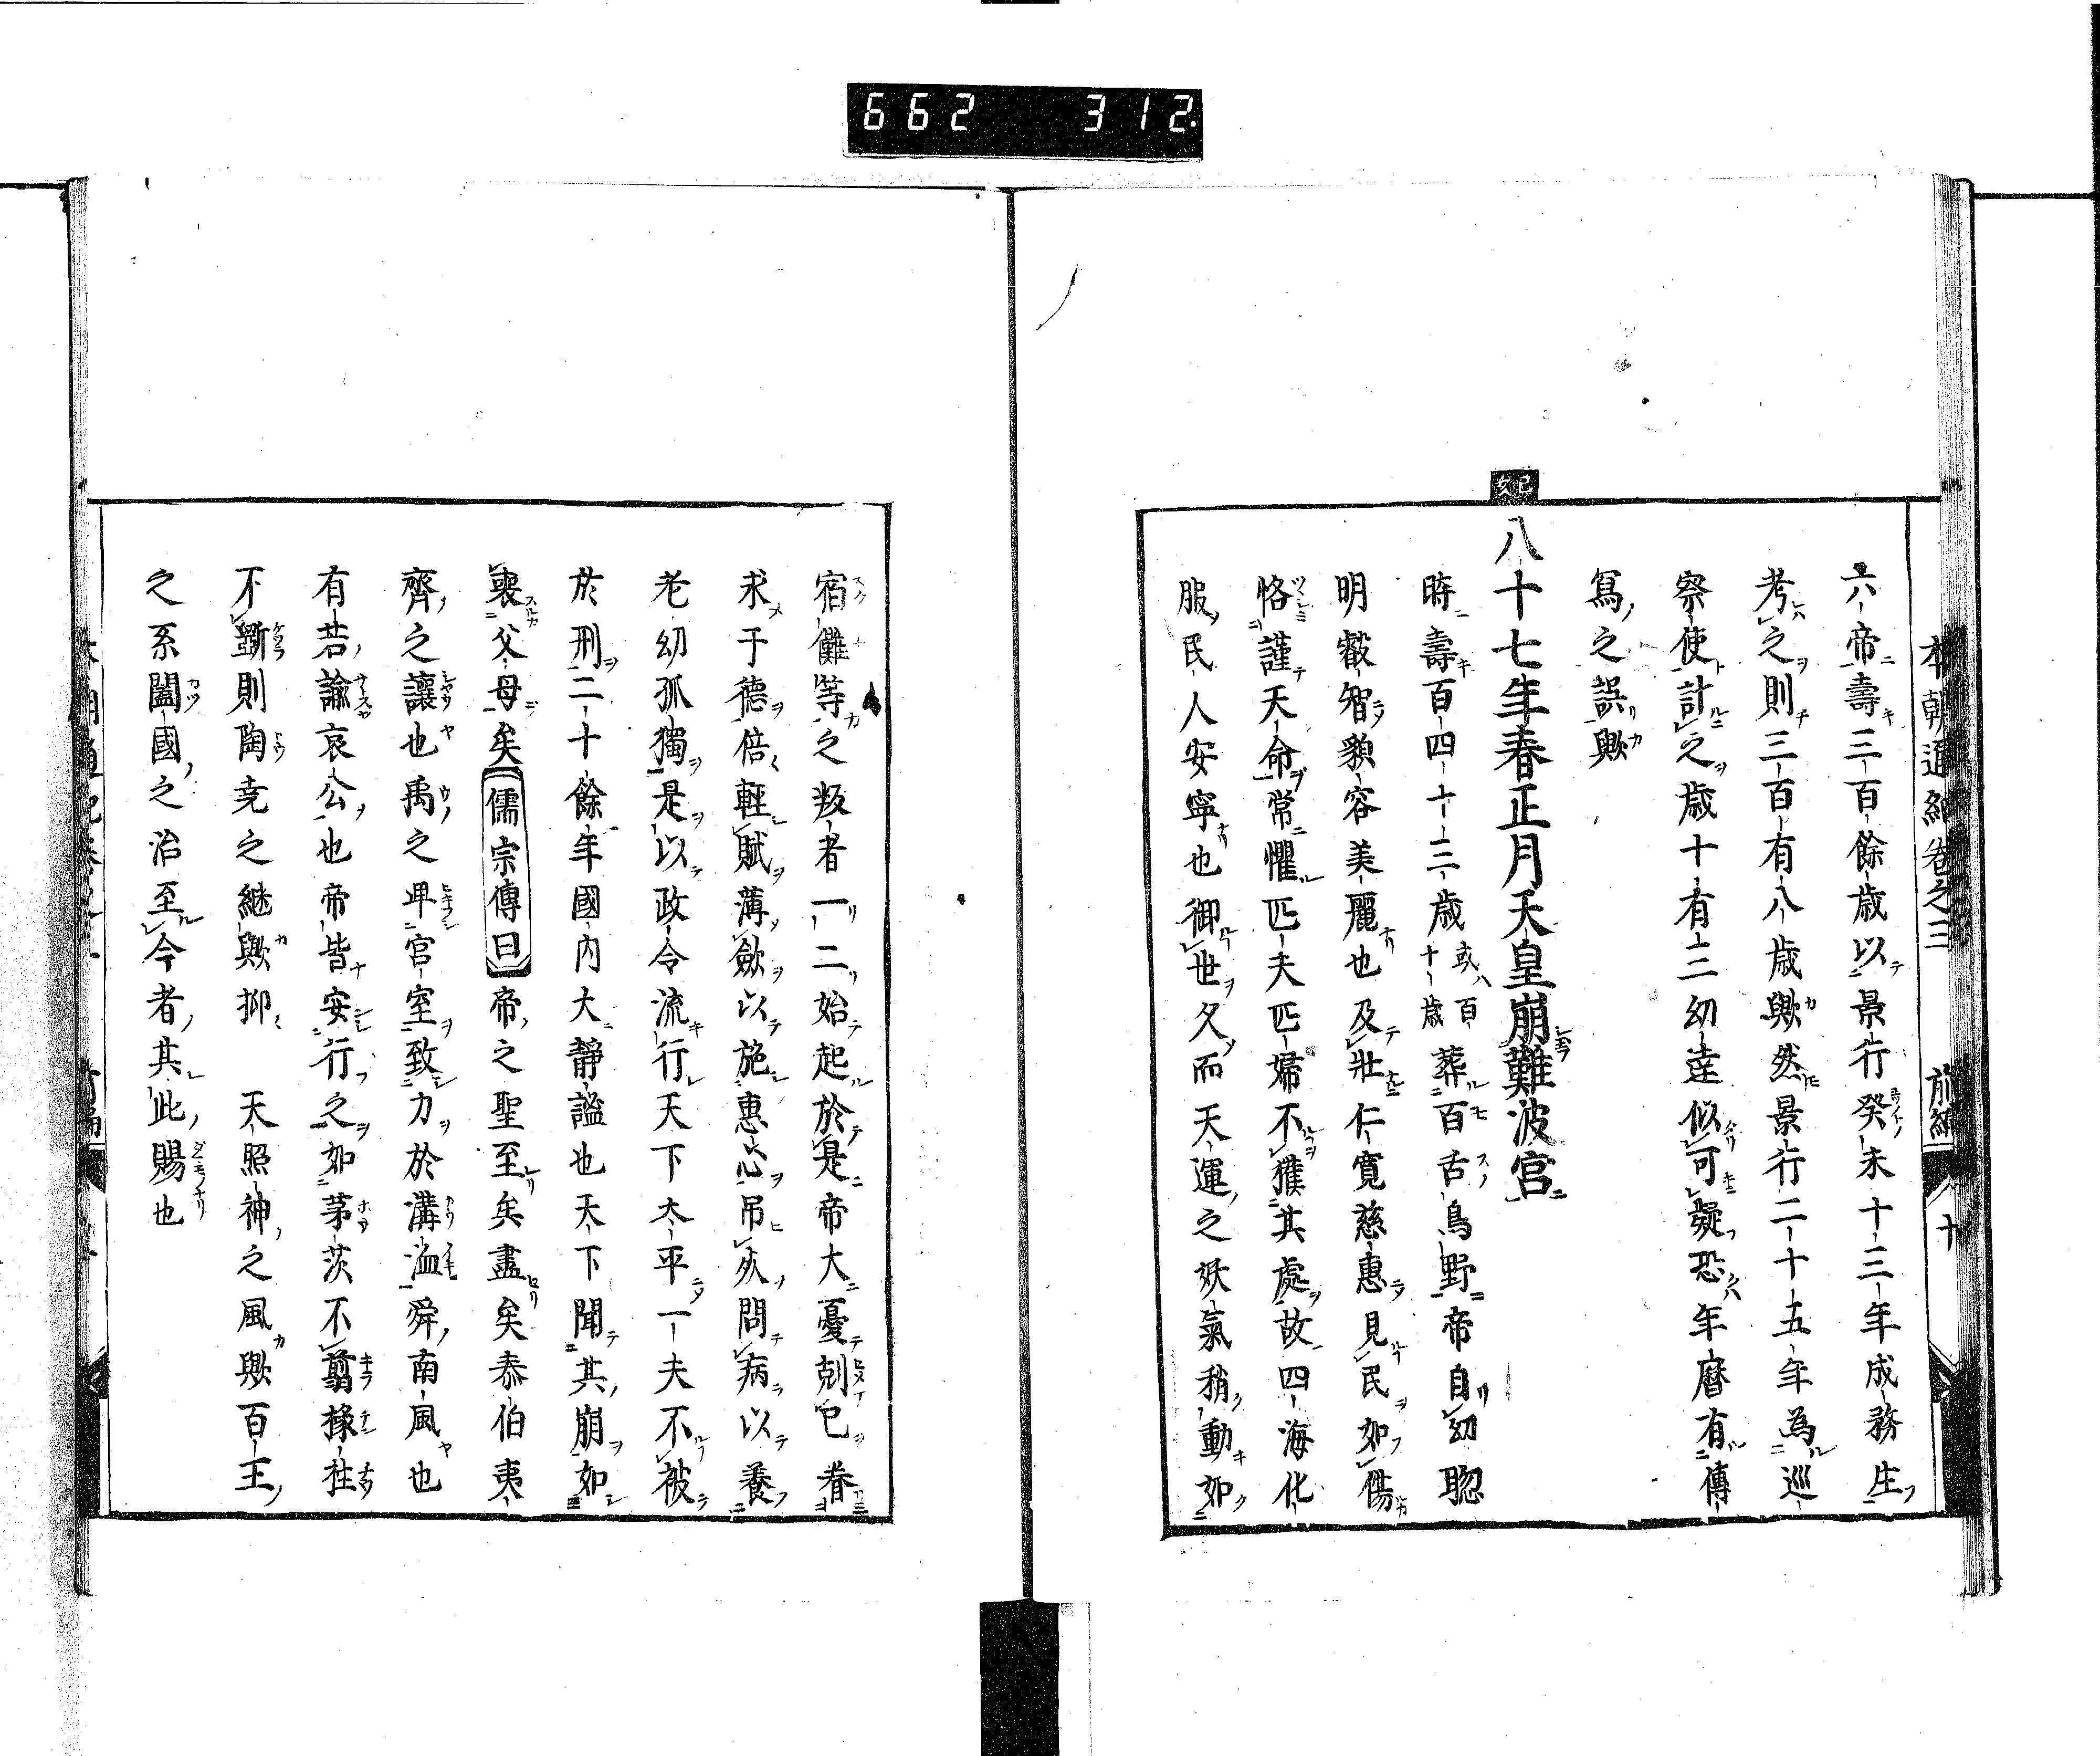 662 312
本朝通紀卷之三 前編 十
六帝壽三百餘歳以景行癸未十三年成務生
考之則三百有八歳歟然景行二十五年為巡
察使計之歳十有二幼逹似可疑恐年暦有傳
寫之誤歟
己亥
八十七年春正月天皇崩難波宮
時壽百四十三歳或百十歳葬百舌鳥野帝自幼聡
明叡智貌容美麗也及壯仁寛慈惠見民如傷
恪謹天命常懼匹夫匹婦不獲其處故四海化
服民人安寧也御世久而天運之妖氣稍動如
宿儺等之叛者一二始起於是帝大憂剋已眷
求于德倍輕賦薄斂以施惠心吊灾問病以養
老幼孤獨是以政令流行天下太平一夫不被
於刑二十餘年國内大靜謐也天下聞其崩如
喪父母矣儒宗傳曰帝之聖至矣盡矣泰伯夷
齊之讓也禹之卑宮室致力於溝洫舜南風也
有若諭哀公也帝皆安行之如茅茨不翦椽柱
不斲則陶尭之継歟抑 天照神之風歟百王
之系闔國之治至今者其此賜也